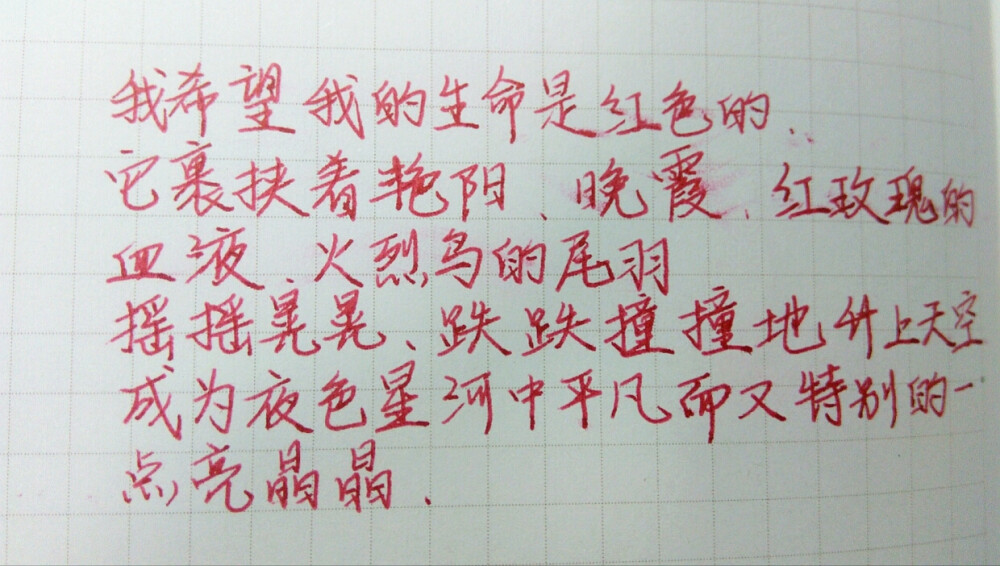 我希望我的生命是红色的.
它裹挟着艳阳、晚霞、红玫瑰的
血液、火烈鸟的尾羽
摇摇晃晃、跌跌撞撞地升上天空
成为夜色星河中平凡而又特别的一
点亮晶晶.